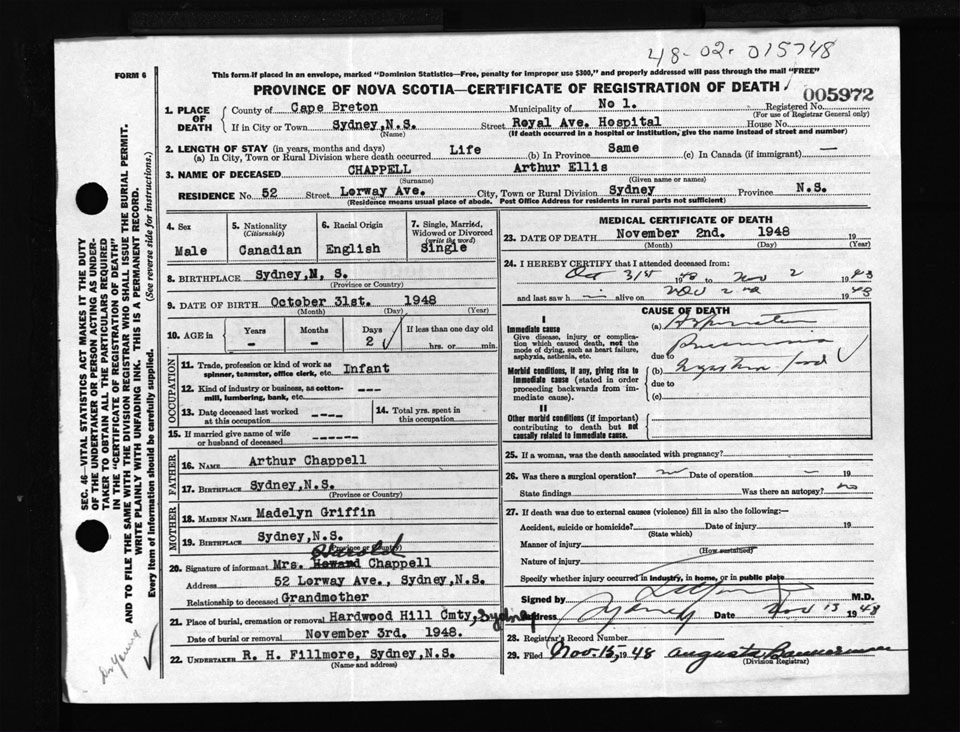 48-02-015748
FORM 6
This form if placed in an envelope, marked "Dominion Statistics—Free, penalty for improper use $300," and properly addressed will pass through the mail "FREE"
PROVINCE OF NOVA SCOTIA—CERTIFICATE OF REGISTRATION OF DEATH
005972
1. PLACE OF DEATH County of Cape Breton Municipality of No 1. Registered No.
(For use of Registrar General only)
If in City or Town Sydney, N.S. Street Royal Ave. Hospital House No.
(Name) (If death occurred in a hospital or institution, give the name instead of street and number)
2. LENGTH OF STAY (in years, months and days)
(a) In City, Town or Rural Division where death occurred Life (b) In Province Same (c) In Canada (if immigrant) —
3. NAME OF DECEASED CHAPPELL Arthur Ellis
(Surname) (Given name or names)
RESIDENCE No. 52 Street Lorway Ave. City, Town or Rural Division Sydney Province N.S.
(Residence means usual place of abode. Post Office Address for residents in rural parts not sufficient)
4. Sex Male
5. Nationality (Citizenship) Canadian
6. Racial Origin English
7. Single, Married, Widowed or Divorced (write the word) Single
8. BIRTHPLACE Sydney, N, S.
(Province or Country)
9. DATE OF BIRTH October 31st. 1948
(Month) (Day) (Year)
10. AGE in Years - Months - Days 2 If less than one day old
hrs. or min.
OCCUPATION
11. Trade, profession or kind of work as spinner, teamster, office clerk, etc. Infant
12. Kind of industry or business, as cotton-mill, lumbering, bank, etc. ---
13. Date deceased last worked at this occupation ----
14. Total yrs. spent in this occupation
15. If married give name of wife or husband of deceased ------
FATHER
16. NAME Arthur Chappell
17. BIRTHPLACE Sydney, N.S.
(Province or Country)
MOTHER
18. MAIDEN NAME Madelyn Griffin
19. BIRTHPLACE Sydney, N.S.
(Province or Country)
Harold
20. Signature of informant Mrs. Howard Chappell
Address 52 Lorway Ave., Sydney, N.S.
Relationship to deceased Grandmother
21. Place of burial, cremation or removal Hardwood Hill Cmty, Sydney
Date of burial or removal November 3rd. 1948.
22. UNDERTAKER R. H. Fillmore, Sydney, N.S.
(Name and address)
MEDICAL CERTIFICATE OF DEATH
23. DATE OF DEATH November 2nd. 1948 19
(Month) (Day) (Year)
24. I HEREBY CERTIFY that I attended deceased from:
Oct 31st 1948 to Nov 2 19
and last saw h im alive on Nov 2nd 1948
CAUSE OF DEATH
I
Immediate cause
Give disease, injury or complication which caused death, not the mode of dying, such as heart failure, asphyxia, asthenia, etc.
(a)
Pneumonia
due to
Morbid conditions, if any, giving rise to immediate cause (stated in order proceeding backwards from immediate cause).
(b) food
due to
(c)
II
Other morbid conditions (if important) contributing to death but not causally related to immediate cause.
25. If a woman, was the death associated with pregnancy?
26. Was there a surgical operation? no Date of operation — 19
State findings Was there an autopsy? no
27. If death was due to external causes (violence) fill in also the following:—
Accident, suicide or homicide? Date of injury 19
(State which)
Manner of injury
(How sustained)
Nature of injury
Specify whether injury occurred in industry, in home, or in public place
Signed by M.D.
Address Sydney Date Nov 13 1948
28. Registrar's Record Number
29. Filed Nov. 15, 1948 Augusta Bannerman
(Division Registrar)
SEC. 46—VITAL STATISTICS ACT MAKES IT THE DUTY
OF THE UNDERTAKER OR PERSON ACTING AS UNDERTAKER TO OBTAIN ALL THE PARTICULARS REQUIRED
IN THE "CERTIFICATE OF REGISTRATION OF DEATH"
AND TO FILE THE SAME WITH THE DIVISION REGISTRAR WHO SHALL ISSUE THE BURIAL PERMIT.
WRITE PLAINLY WITH UNFADING INK. THIS IS A PERMANENT RECORD.
Every item of Information should be carefully supplied. (See reverse side for instructions.)
Dr Young